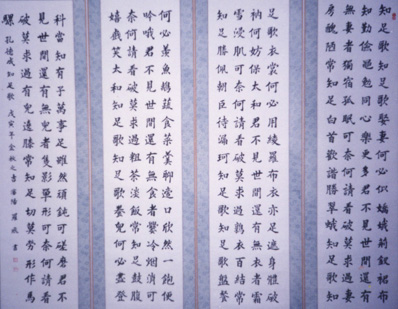 知足歌知足歌娶妻何必似嫦娥荊釵裙布
知勤儉勉同心樂更多君不見世間還有
無妻者獨宿孤眠可奈何請看破莫求過妻
房醜陋常知足白首歡諧勝翠娥知足歌知
足歌衣裳何必用綾羅布衣亦足遮身體破
衲何妨保太和君不見世間還有無衣者霜
雪浸肌可奈何請看破莫求過鶉衣百結常
知足勝佩朝臣待漏珂知足歌知足歌盤餐
何必羨魚鵝蔬食菜羹聊適口欣然一飽便
吟哦君不見世間有無食者爨冷烟消可
奈何請看破莫求過粗茶淡飯常知足鼓腹
嬉戲笑太和知足歌知足歌養兒何必盡登
科當知有子萬事足雖然頑鈍可磋磨君不
見世間還有無兒者隻影單形可奈何請看
破莫求過有兒遶膝常知足切莫勞形作馬
騾 孔德成知足歌 戊寅年金秋之吉 羅成書